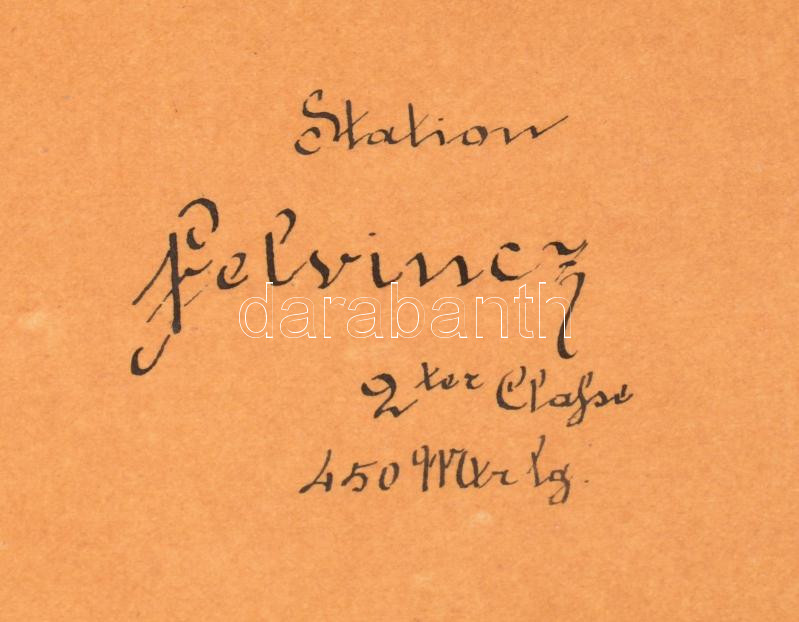 Station
Felvincz
darabanth
2ter Claſse
450 Mtr lg.